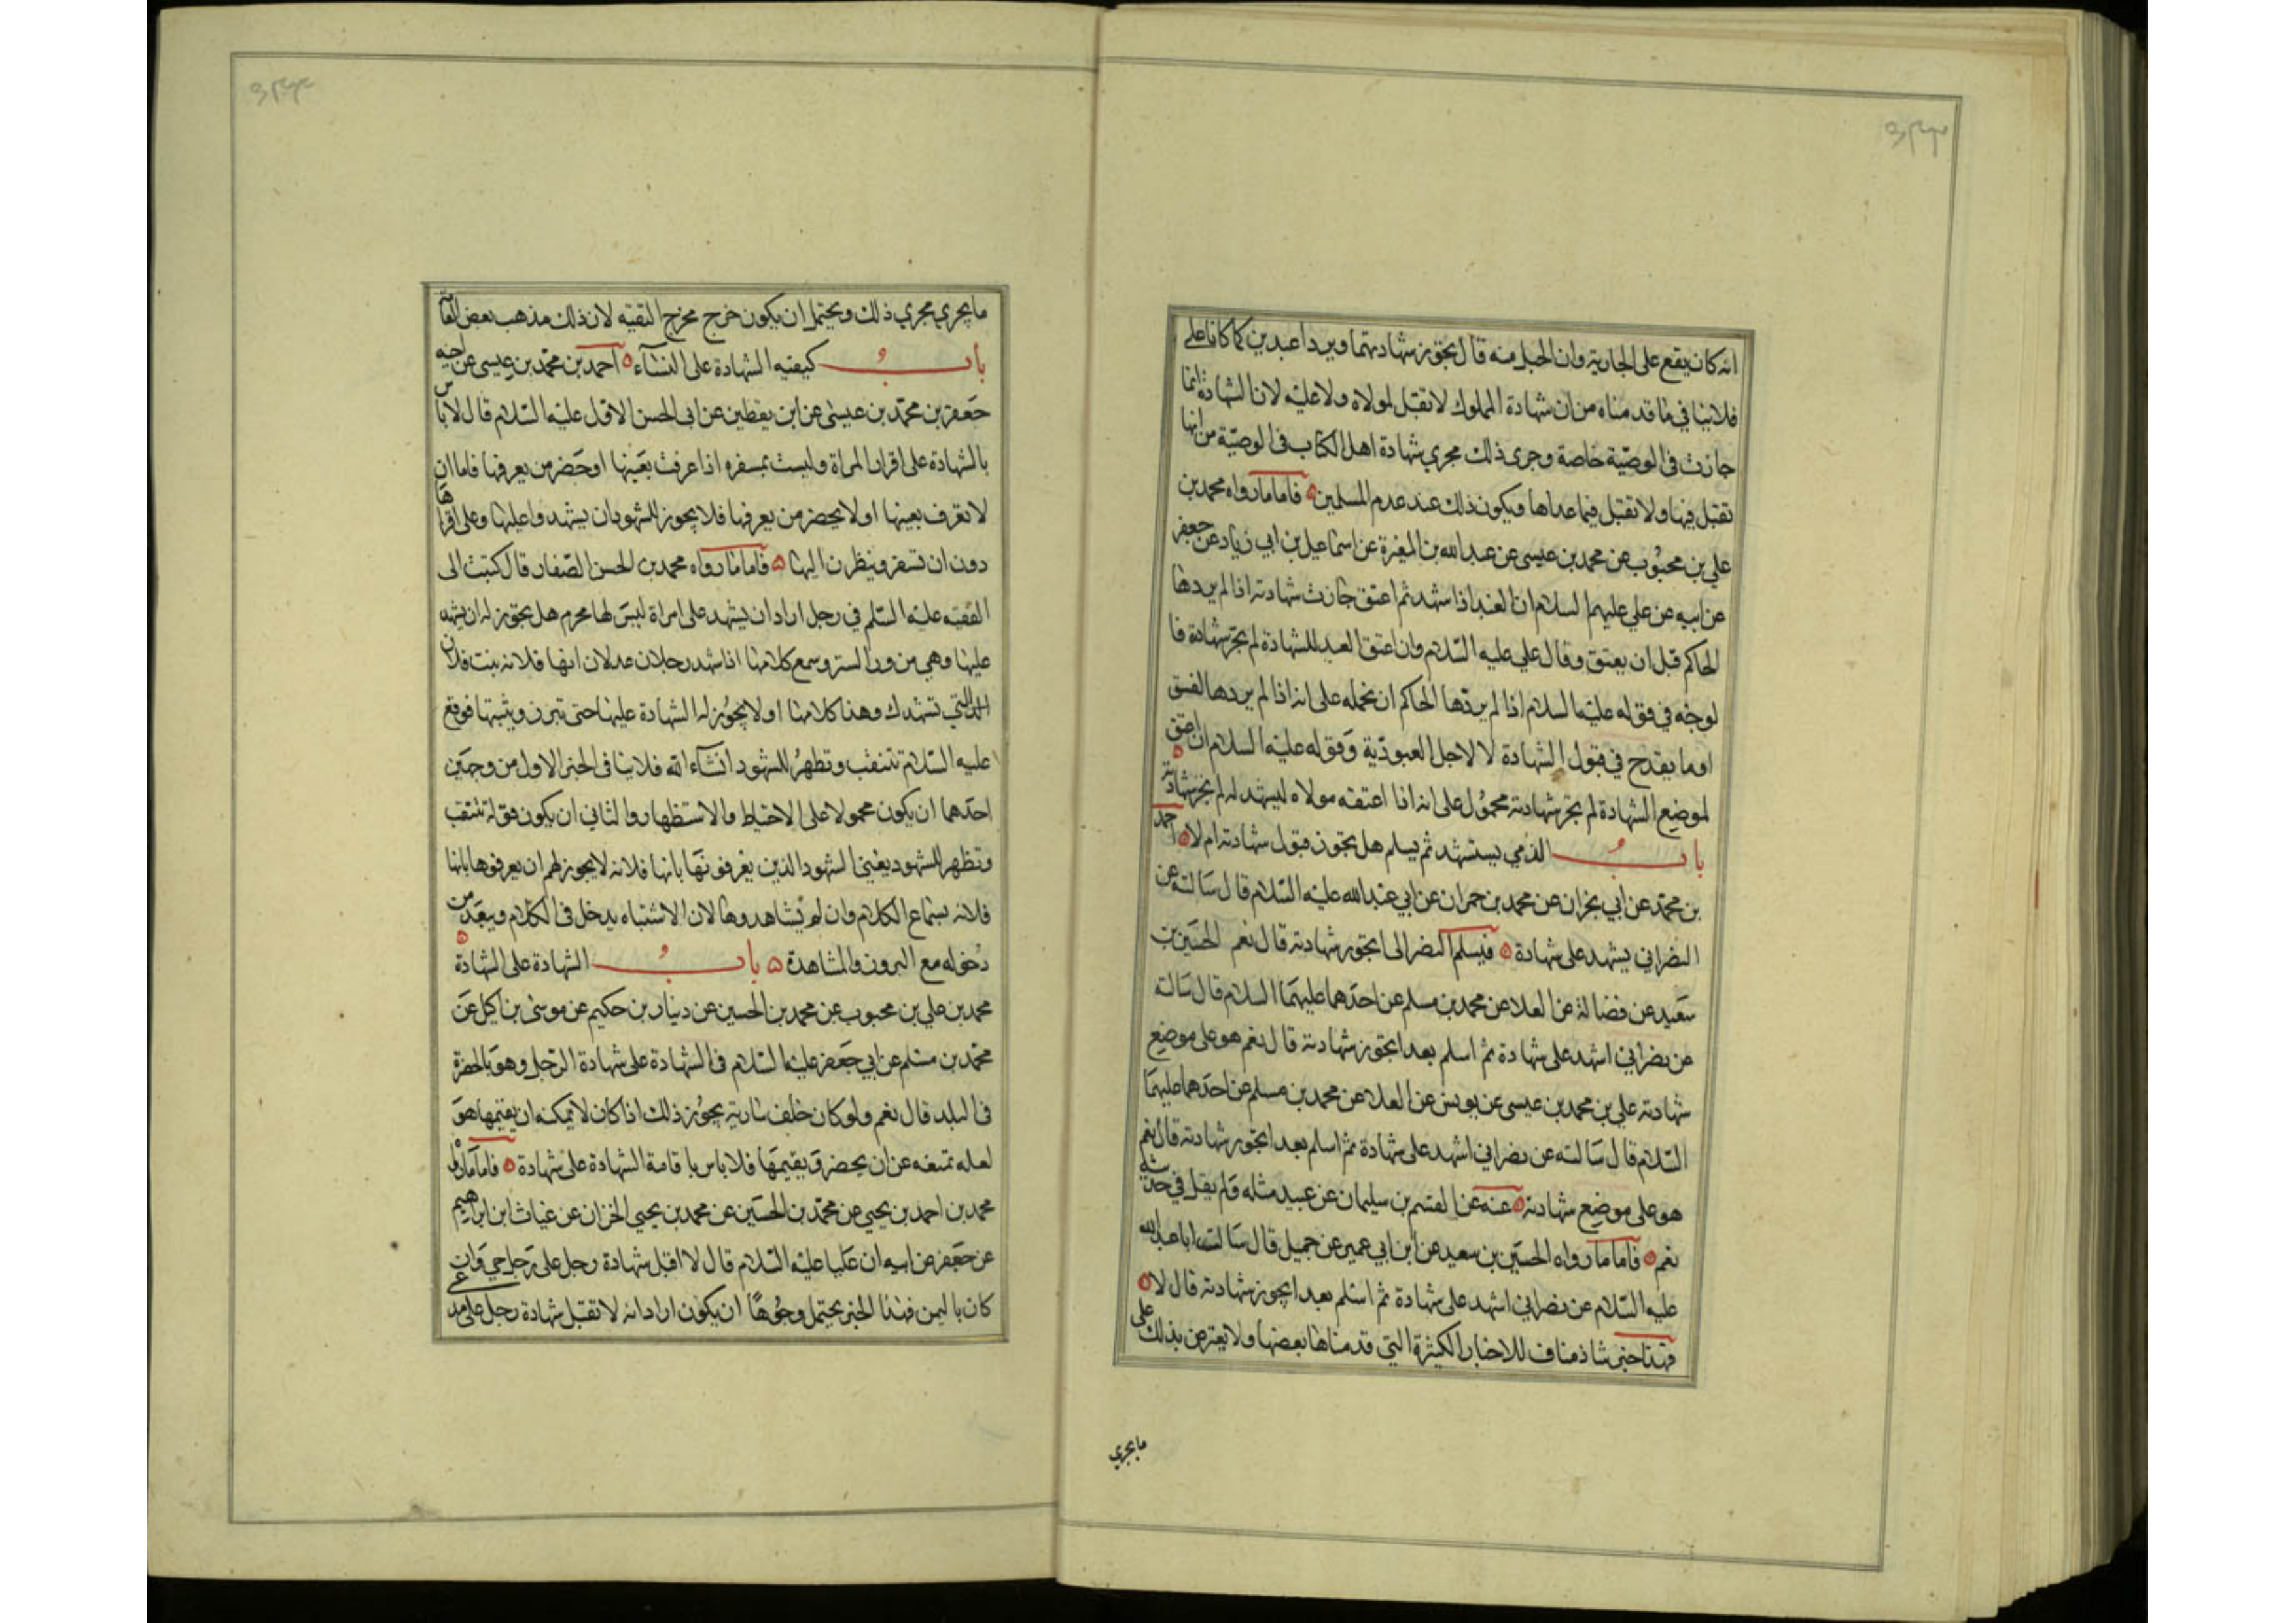 انه كان يقع على الجارية وان الحبل منه قال يجوز شهادتهما ويردا عبدين كما كانا على
فلا ينافي ما قدمناه من ان شهادة المملوك لا تقبل لمولاه ولا عليه لان الشهادة انما
جازت في الوصية خاصة وجرى ذلك مجري شهادة اهل الكتاب في الوصية من انها
تقبل فيها ولا تقبل فيما عداها ويكون ذلك عند عدم المسلمين فاما ما رواه محمد بن
علي بن محبوب عن محمد بن عيسى عن عبد الله بن المغيرة عن اسماعيل بن ابي زياد عن جعفر
عن ابيه عن علي عليهم السلام ان العبد اذا شهد ثم اعتق جازت شهادته اذا لم يردها
الحاكم قبل ان يعتق وقال علي عليه السلام وان اعتق العبد للشهادة لم يجز شهادة فا
لوجه في قوله عليه السلام اذا لم يردها الحاكم ان نحمله على انه اذا لم يردها لفسق
او ما يقدح في قبول الشهادة لا لاجل العبودية وقوله عليه السلام ان اعتق
لموضع الشهادة لم يجز شهادته محمول على انه اذا اعتقه مولاه ليشهد له لم يجز شهادته
باب الذمي يستشهد ثم يسلم هل يجوز قبول شهادته ام لا احمد
بن محمد عن ابي نجران عن محمد بن حمران عن ابي عبد الله عليه السلام قال سالته عن
النصراني يشهد على شهادة فيسلم النصراني ايجوز شهادته قال نعم الحسين بن
سعيد عن فضالة عن العلا عن محمد بن مسلم عن احدهما عليهما السلام قال سالته
عن نصراني اشهد على شهادة ثم اسلم بعد ايجوز شهادته قال نعم هو على موضع
شهادته علي بن محمد بن عيسى عن يونس عن العلا عن محمد بن مسلم عن احدهما عليهما
السلام قال سالته عن نصراني اشهد على شهادة ثم اسلم بعد ايجوز شهادته قال نعم
هو على موضع شهادته عنه عن القسم بن سليمان عن عبيد مثله ولم يقل في حديثه
نعم فاما ما رواه الحسين بن سعيد عن ابن ابي عمير عن جميل قال سالت ابا عبد الله
عليه السلام عن نصراني اشهد على شهادة ثم اسلم بعد ايجوز شهادته قال لا
فهذا خبر شاذ مناف للاخبار الكثيرة التي قدمناها بعضها ولا يعترض بذلك على
ما يجري
ما يجري مجري ذلك ويحتمل ان يكون خرج مخرج التقيه لان ذلك مذهب بعض العامة
باب كيفيه الشهادة على النساء احمد بن محمد بن عيسى عن اخيه
جعفر بن محمد بن عيسى عن ابن يقطين عن ابى الحسن الاول عليه السلام قال لا باس
بالشهادة على اقرار المراة وليست بمسفره اذا عرفت بعينها او حضر من يعرفها فاما ان
لا تعرف بعينها او لا يحضر من يعرفها فلا يجوز للشهود ان يشهدوا عليها وعلى اقرارها
دون ان تسفر وينظرن اليها فاما ما رواه محمد بن الحسن الصفار قال كتبت الى
الفقيه عليه السلم في رجل اراد ان يشهد على امراة ليس لها محرم هل يجوز له ان يشهد
عليها وهي من ورا الستر وسمع كلامها اذا شهد رجلان عدلان انها فلانه بنت فلان
التي تشهدك وهذا كلامها او لا يجوز له الشهادة عليها حتى تبرز ويثبتها فوقع
عليه السلام تتنقب وتظهر للشهود انشاء الله فلا ينافى الخبر الاول من وجهين
احدهما ان يكون محمولا على الاحتياط والاستظهار والثاني ان يكون قوله تتنقب
وتظهر للشهود يعني الشهود الذين يعرفونها بانها فلانه لا يجوز لهم ان يعرفوها بانها
فلانه بسماع الكلام وان لم يشاهدوها لان الاشتباه يدخل في الكلام ويبعد من
دخوله مع البروز والمشاهدة باب الشهادة على الشهادة
محمد بن علي بن محبوب عن محمد بن الحسين عن دينار بن حكيم عن موسى بن اكيل عن
محمد بن مسلم عن ابي جعفر عليه السلام في الشهادة على شهادة الرجل وهو بالحضرة
في البلد قال نعم ولو كان خلف سارية يجوز ذلك اذا كان لا يمكنه ان يقيمها هو
لعله تمنعه عن ان يحضر ويقيمها فلا باس باقامة الشهادة على شهادة فاما ما رواه
محمد بن احمد بن يحيي عن محمد بن الحسين عن محمد بن يحيي الخزاز عن غياث ابن ابراهيم
عن جعفر عن ابيه ان عليا عليه السلام قال لا اقبل شهادة رجل على رجل حي وان
كان باليمن فهذا الخبر يحتمل وجوها ان يكون اراد انه لا تقبل شهادة رجل على